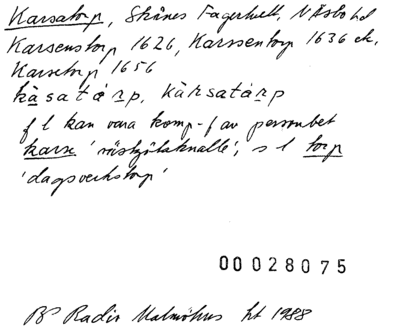 Karsatorp, Skånes Fagerhult, N Åsbo hd
Karsenstorp 1626, Karssentorp 1636 etc.
Karsetorp 1656
kạsatárp, kạ̊rsatạrp
f l kan vara komp-f av personbet
karse 'västgötaknalle', s l torp
'dagsverkstorp'
00028075
BP Radio Malmöhus ht 1988